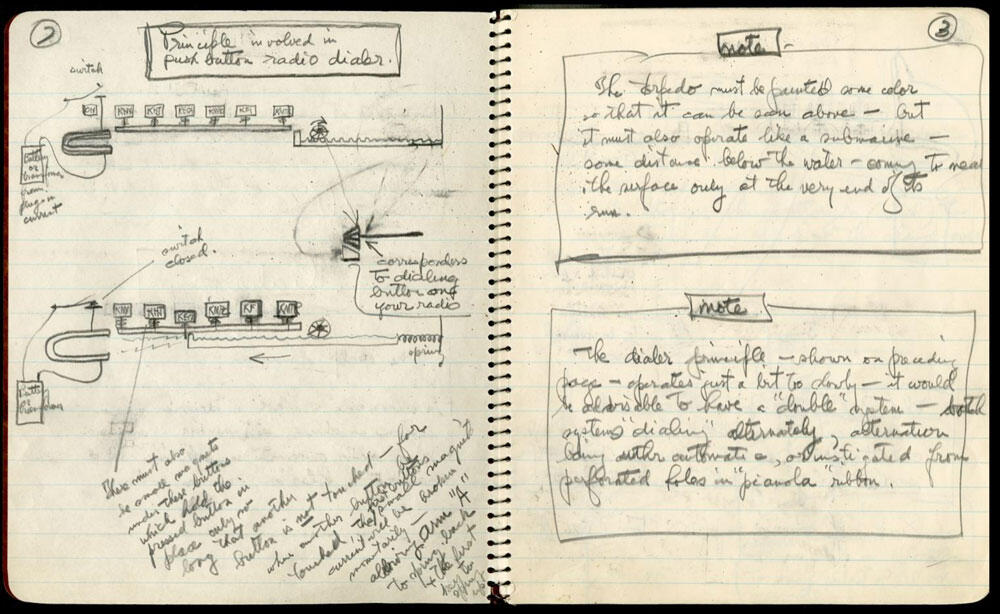 2
Principle involved in
push button radio dialer.
switch
battery
or
transformer
from
plug-in
current
corresponders
to dialing
button on
your radio
switch
closed.
spring
There must also
be small magnets
under these buttons
which hold the
pressed button in
place only so
long that another
button is not touched — for
when another button is
touched the
current will be broken
momentarily —
allowing arm "A"
to spring back
+ the first
key to
spring
up
3
note
The torpedo must be painted some color
so that it can be seen above — but
it must also operate like a submarine —
some distance below the water — coming to near
the surface only at the very end of its
run.
note
The dialer principle — shown on preceding
page — operates just a bit too slowly — it would
be advisable to have a "double" system — both
systems "dialing" alternately, alternation
being either automatic, or instigated from
perforated holes in "pianola" ribbon.